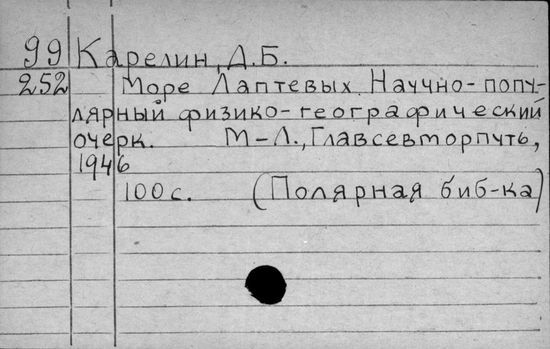 99 Карелин, Д.Б.
252 Море Лаптевых. Научно-попу-
лярный физико-географический
очерк. М-Л., Главсевморпуть,
1946
100 с. (Полярная биб-ка)